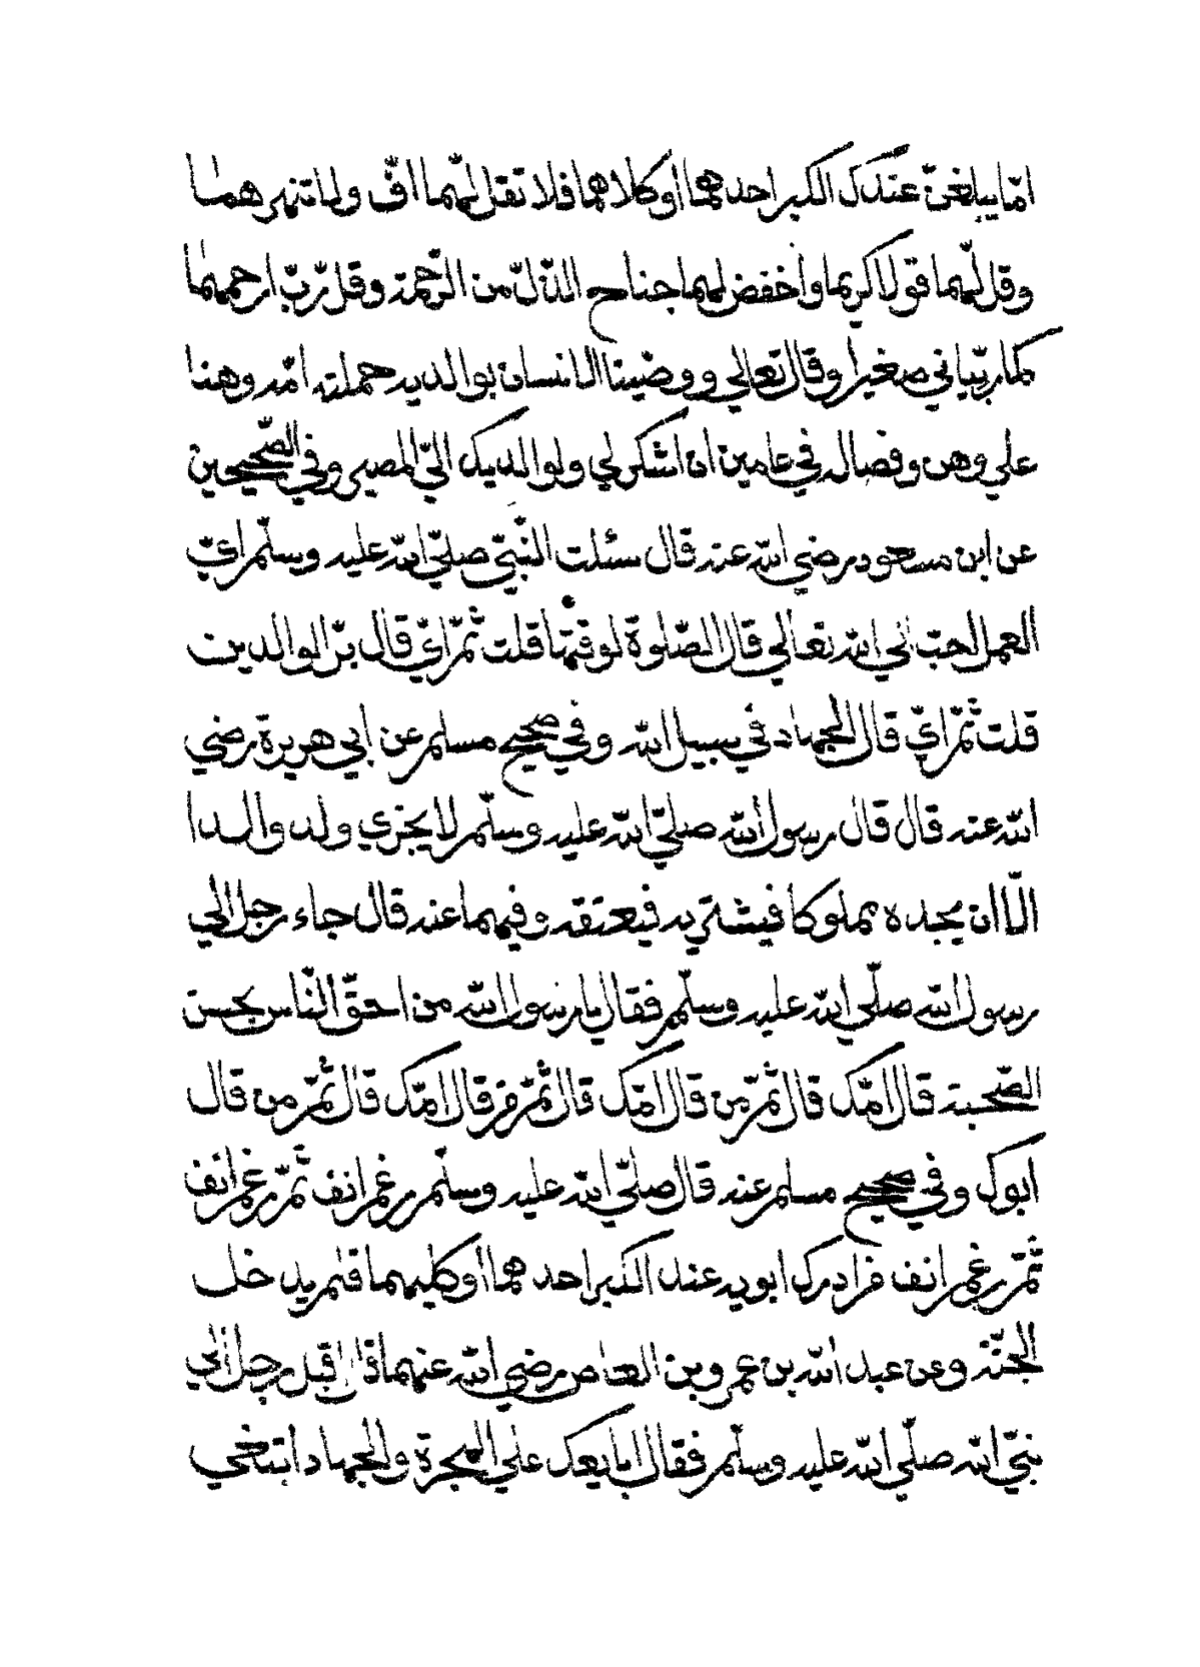 امّا يبلغنّ عندك الكبر احدهما أو كلاهما فلا تقل لهما افّ ولا تنهرهما
وقل لّهما قولا كريما واخفض لهما جناح الذّلّ من الرّحمة وقل رّبّ ارحمهما
كما ربّياني صغيرا وقال تعالي ووصّينا الانسان بوالديه حملته امّه وهنا
علي وهن وفصاله في عامين ان اشكر لي ولوالديك اليّ المصير وفي الصّحيحين
عن ابن مسعود رضي اللّه عنه قال سئلت النّبيّ صلّي اللّه عليه وسلّم ايّ
العمل احبّ الي اللّه تعالي قال الصّلوة لوقتها قلت ثمّ ايّ قال برّ الوالدين
قلت ثمّ ايّ قال الجهاد في سبيل اللّه وفي صحيح مسلم عن ابي هريرة رضي
اللّه عنه قال قال رسول اللّه صلّي اللّه عليه وسلّم لا يجزي ولد والدا
الّا ان يجده مملوكا فيشتريه فيعتقه وفيهما عنه قال جاء رجل الي
رسول اللّه صلّي اللّه عليه وسلّم فقال يا رسول اللّه من احقّ النّاس بحسن
الصّحبة قال امّك قال ثمّ من قال امّك قال ثمّ من قال امّك قال ثمّ من قال
ابوك وفي صحيح مسلم عنه قال صلّي اللّه عليه وسلّم رغم انف ثمّ رغم انف
ثمّ رغم انف من ادرك ابويه عند الكبر احدهما أو كليهما فلم يدخل
الجنّة وعن عبد اللّه بن عمرو بن العاص رضي اللّه عنهما قال اقبل رجل الي
نبيّ اللّه صلّي اللّه عليه وسلّم فقال ابايعك علي الهجرة والجهاد ابتغي